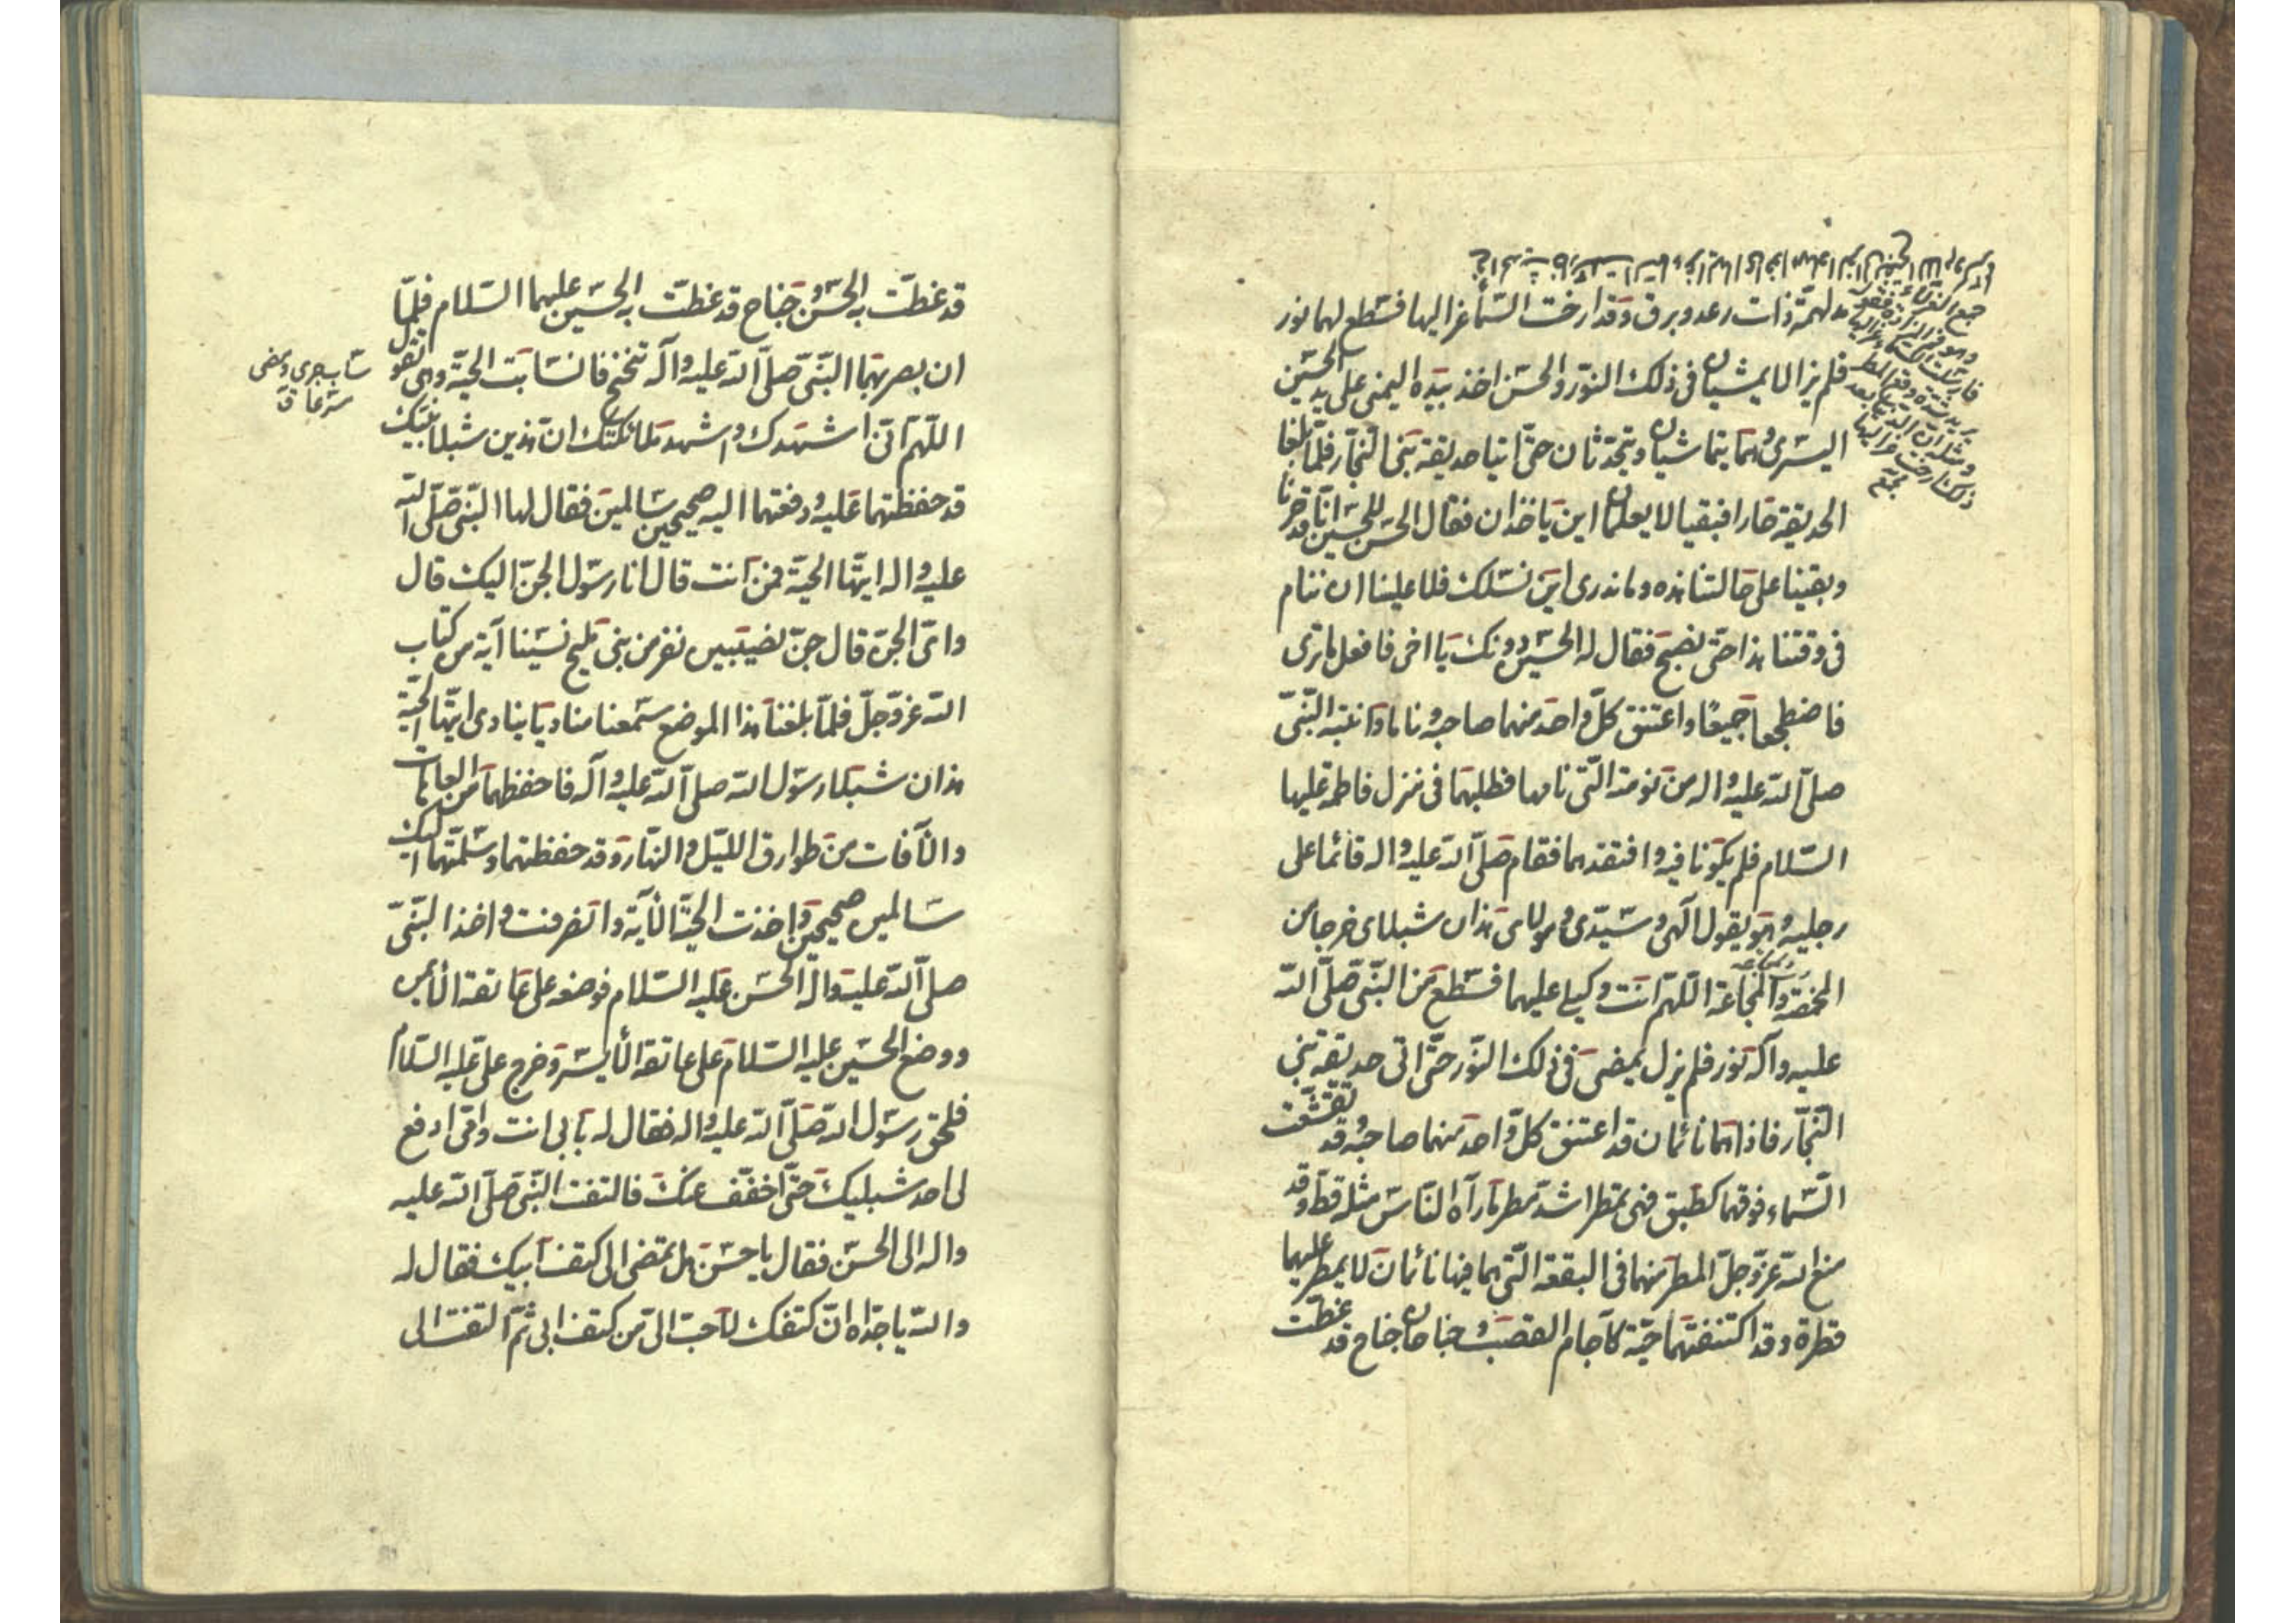 مدلهمة ذات رعد وبرق وقد ارخت السماء عزاليها فسطع لهما نور
فلم يزالا يمشيان في ذلك النور والحسن اخذ بيده اليمنى على يد الحسين
اليسرى وهما يتماشيان ويتحدثان حتى اتيا حديقة بني النجار فلما بلغا
الحديقة حارا فبقيا لا يعلمان اين ياخذان فقال الحسن للحسين انا قد حرنا
وبقينا على حالتنا هذه وما ندرى اين نسلك فلا علينا ان ننام
في وقتنا هذا حتى نصبح فقال له الحسين دونك يا اخى فافعل ما ترى
فاضطجعا جميعا واعتنق كل واحد منهما صاحبه وناما وانتبه النبى
صلى الله عليه واله من نومته التى نامها فطلبهما فى منزل فاطمة عليها
السلام فلم يكونا فيه وافتقدهما فقام صلى الله عليه واله قائما على
رجليه وهو يقول الهى وسيدى ومولاى هذان شبلاى خرجا من
المخمصة والمجاعة اللهم انت وكيلى عليهما فسطع من النبى صلى الله
عليه وآله نور فلم يزل يمضى فى ذلك النور حتى اتى حديقة بنى
النجار فاذا هما نائمان قد اعتنق كل واحد منهما صاحبه وقد تقشعت
السماء فوقهما كطبق فهى تمطر اشد مطر ما رآه الناس مثله قط وقد
منع الله عز وجل المطر منهما فى البقعة التى هما فيها نائمان لا يمطر عليهما
قطرة وقد اكتنفتهما حية كآجام القصب وجناحان جناح قد غطت
قد غطت به الحسن وجناح قد غطت به الحسين عليهما السلام فلما
ان بصر بهما النبى صلى الله عليه وآله تنحنح فانسابت الحية وهى تقول
اللهم انى اشهدك واشهد ملائكتك ان هذين شبلا نبيك
قد حفظتهما عليه ودفعتهما اليه صحيحين سالمين فقال لها النبى صلى الله
عليه واله ايتها الحية فمن انت قال انا رسول الجن اليك قال
واى الجن قال جن نصيبين نفر من بنى مليح نسينا آية من كتاب
الله عز وجل فلما بلغنا هذا الموضع سمعنا مناديا ينادى ايتها الحية
هذان شبلا رسول الله صلى الله عليه وآله فاحفظهما من العاهات
والآفات من طوارق الليل والنهار وقد حفظتهما وسلمتهما اليك
سالمين صحيحين واخذت الحية الآية وانصرفت واخذ النبى
صلى الله عليه واله الحسن عليه السلام فوضعه على عاتقه الأيمن
ووضع الحسين عليه السلام على عاتقه الأيسر وخرج على عليه السلام
فلحق رسول الله صلى الله عليه واله فقال له بابى انت وامى ادفع
لى احد شبليك حتى اخفف عنك فالتفت النبى صلى الله عليه
واله الى الحسن فقال يا حسن هل تمضى الى كتف ابيك فقال له
والله يا جداه ان كتفك لاحب الى من كتف ابى ثم التفت الى
ساب جرى ومضى
مسرعا ق